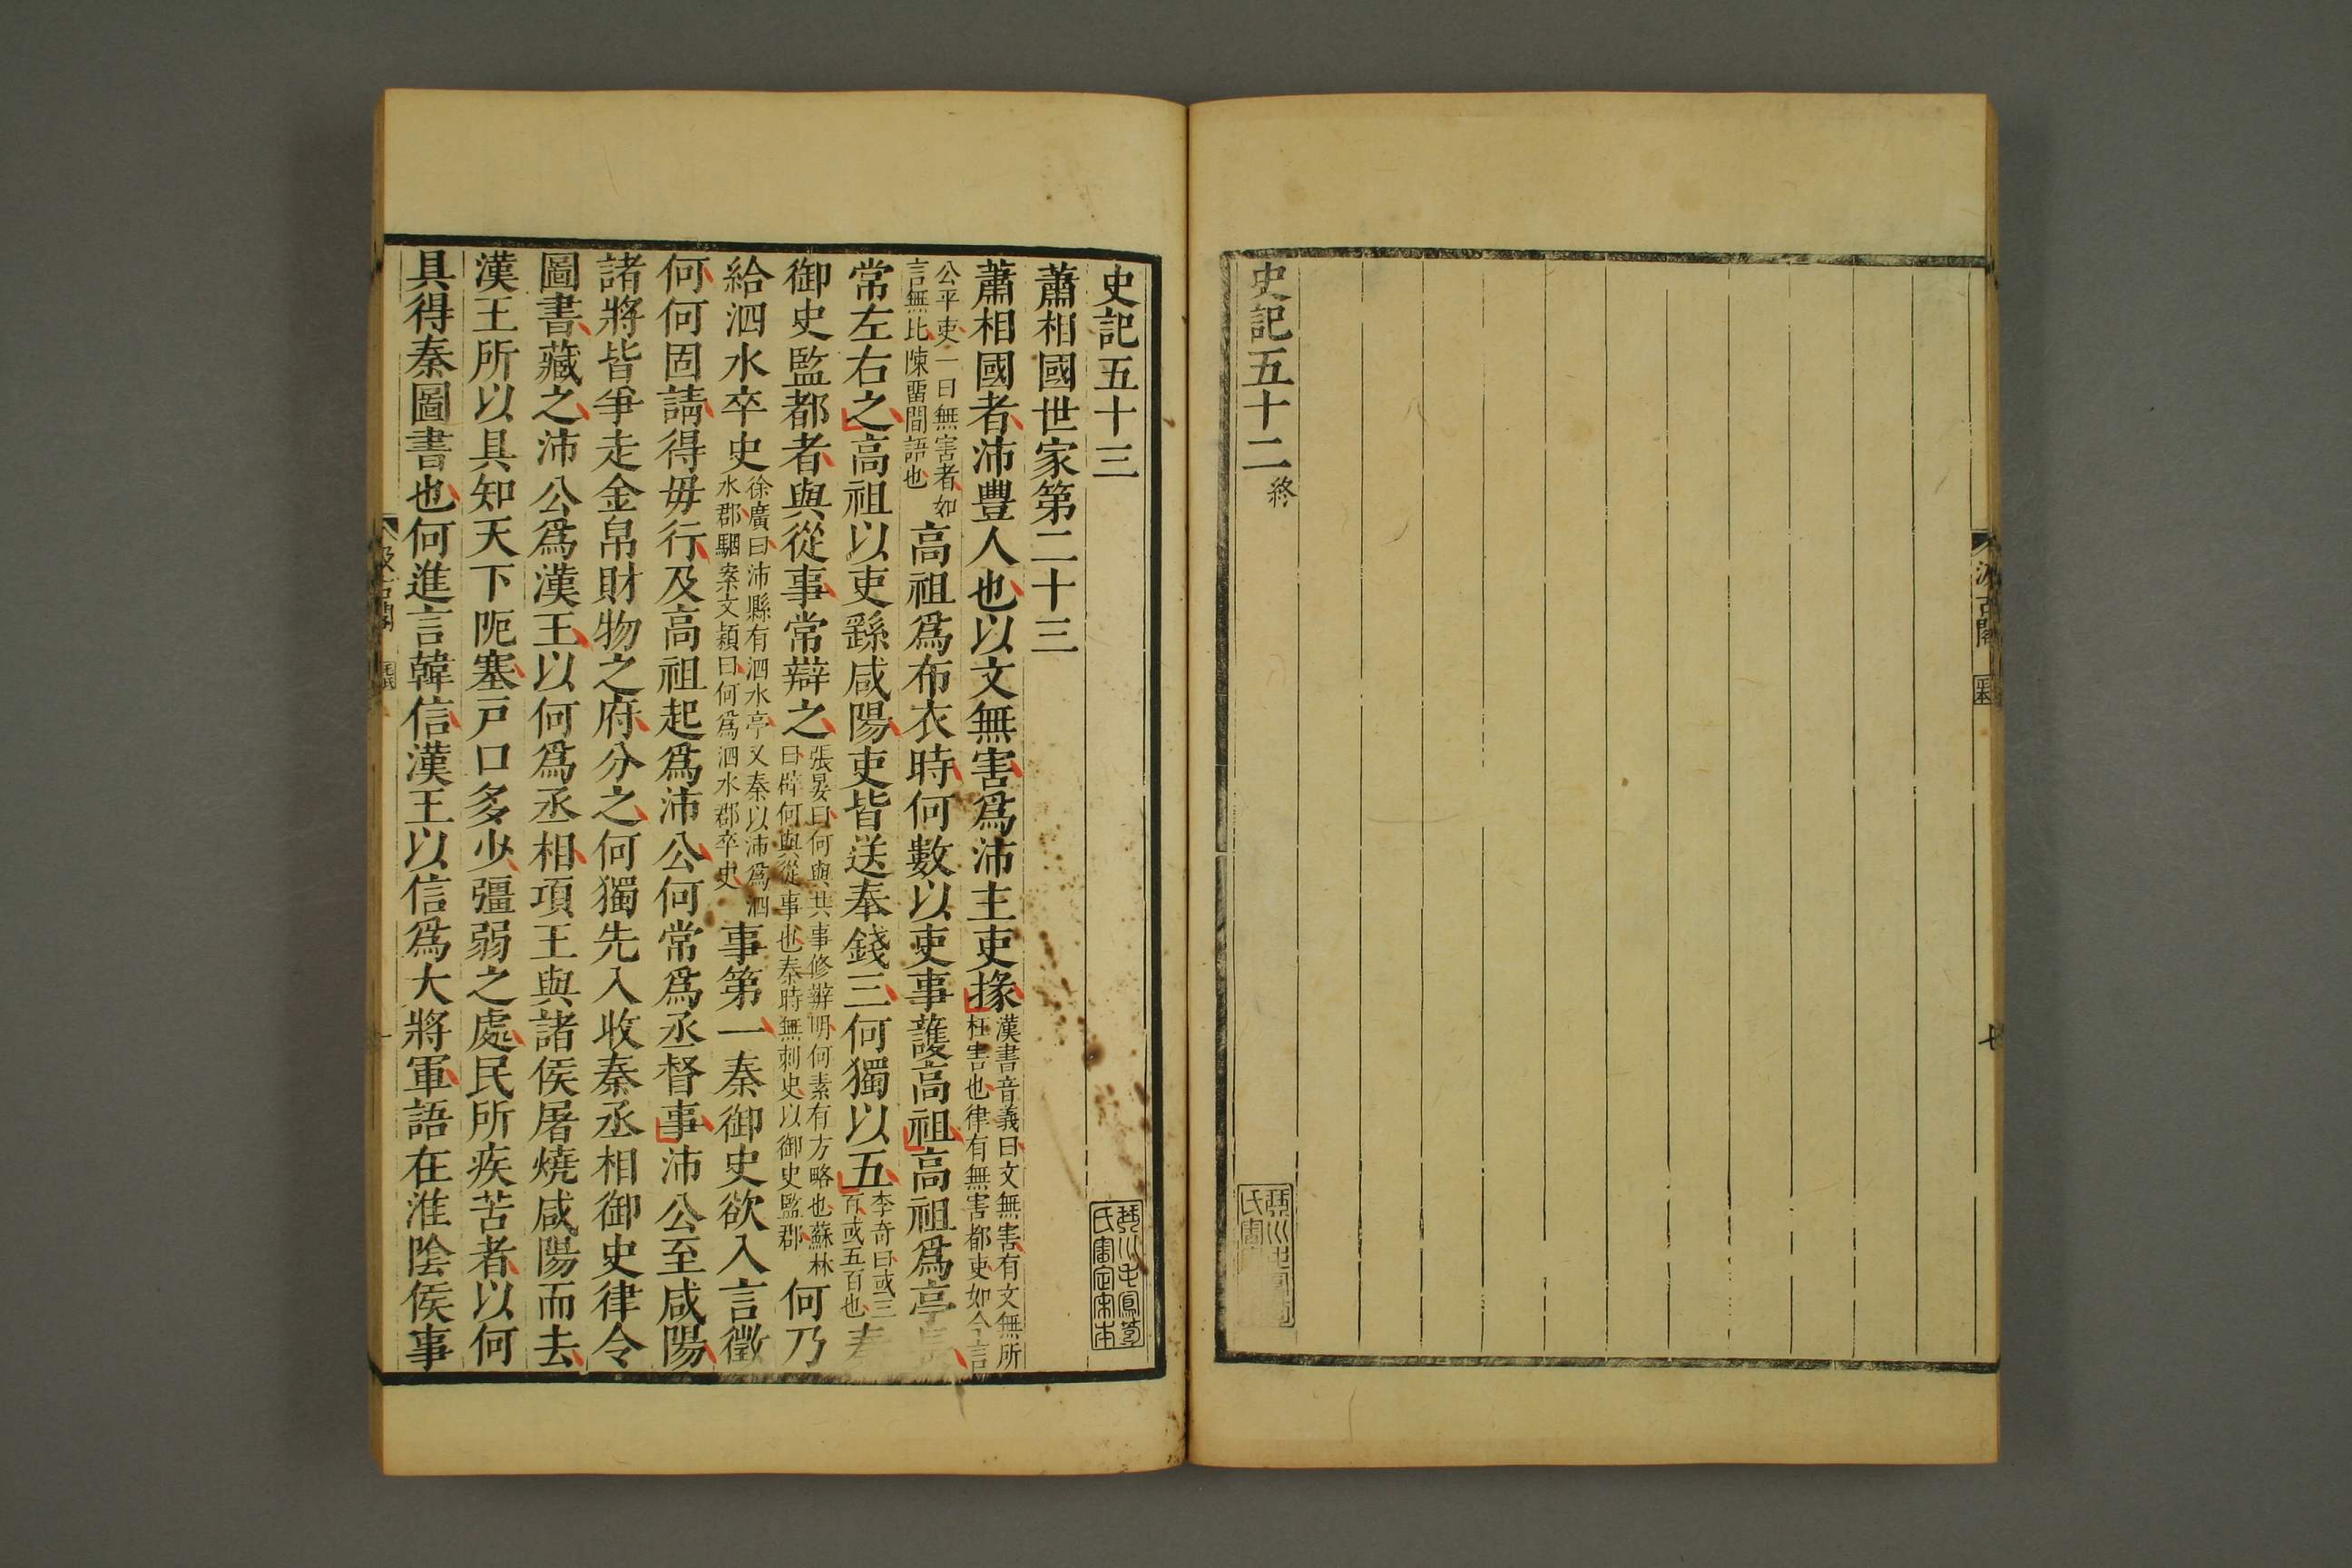 史記五十二終
史記五十三
蕭相國世家第二十三
蕭相國者沛豐人也以文無害爲沛主吏掾漢書音義曰文無害有文無所枉害也律有無害都吏如今言
公平吏一曰無害者如言無比陳留間語也高祖爲布衣時何數以吏事護高祖高祖爲亭長
常左右之高祖以吏繇咸陽吏皆送奉錢三何獨以五李奇曰或三百或五百也秦
御史監郡者與從事常辯之張晏曰何與共事修辦明何素有方略也蘇林曰辟何與從事也秦時無刺史以御史監郡何乃
給泗水卒史徐廣曰沛縣有泗水亭又秦以沛爲泗水郡駰案文穎曰何爲泗水郡卒史事第一秦御史欲入言徵
何何固請得毋行及高祖起爲沛公何常爲丞督事沛公至咸陽
諸將皆爭走金帛財物之府分之何獨先入收秦丞相御史律令
圖書藏之沛公爲漢王以何爲丞相項王與諸侯屠燒咸陽而去
漢王所以具知天下阨塞戸口多少彊弱之處民所疾苦者以何
具得秦圖書也何進言韓信漢王以信爲大將軍語在淮陰侯事